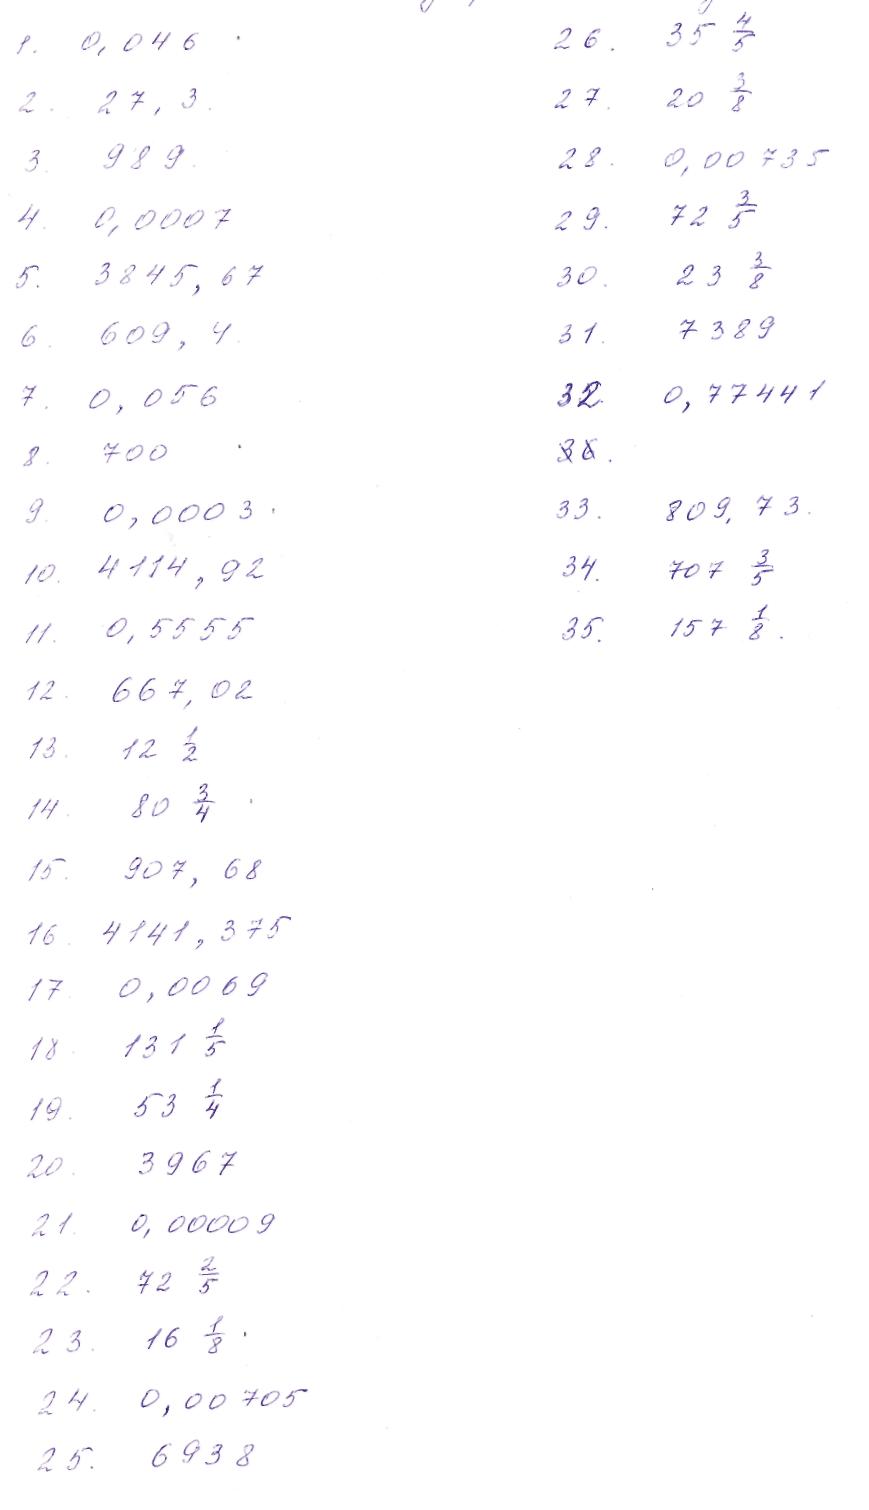 1. 0,046
2. 27,3.
3. 989.
4. 0,0007
5. 3845,67
6. 609,4
7. 0,056
8. 700
9. 0,0003.
10. 4114,92
11. 0,5555
12. 667,02
13. 12 1/2
14. 80 3/4
15. 907,68
16. 4141,375
17. 0,0069
18. 131 1/5
19. 53 1/4
20. 3967
21. 0,00009
22. 72 2/5
23. 16 1/8
24. 0,00705
25. 6938
26. 35 4/5
27. 20 3/8
28. 0,00735
29. 72 3/5
30. 23 3/8
31. 7389
32. 0,77441
33. 809,73.
34. 707 3/5
35. 157 1/8.